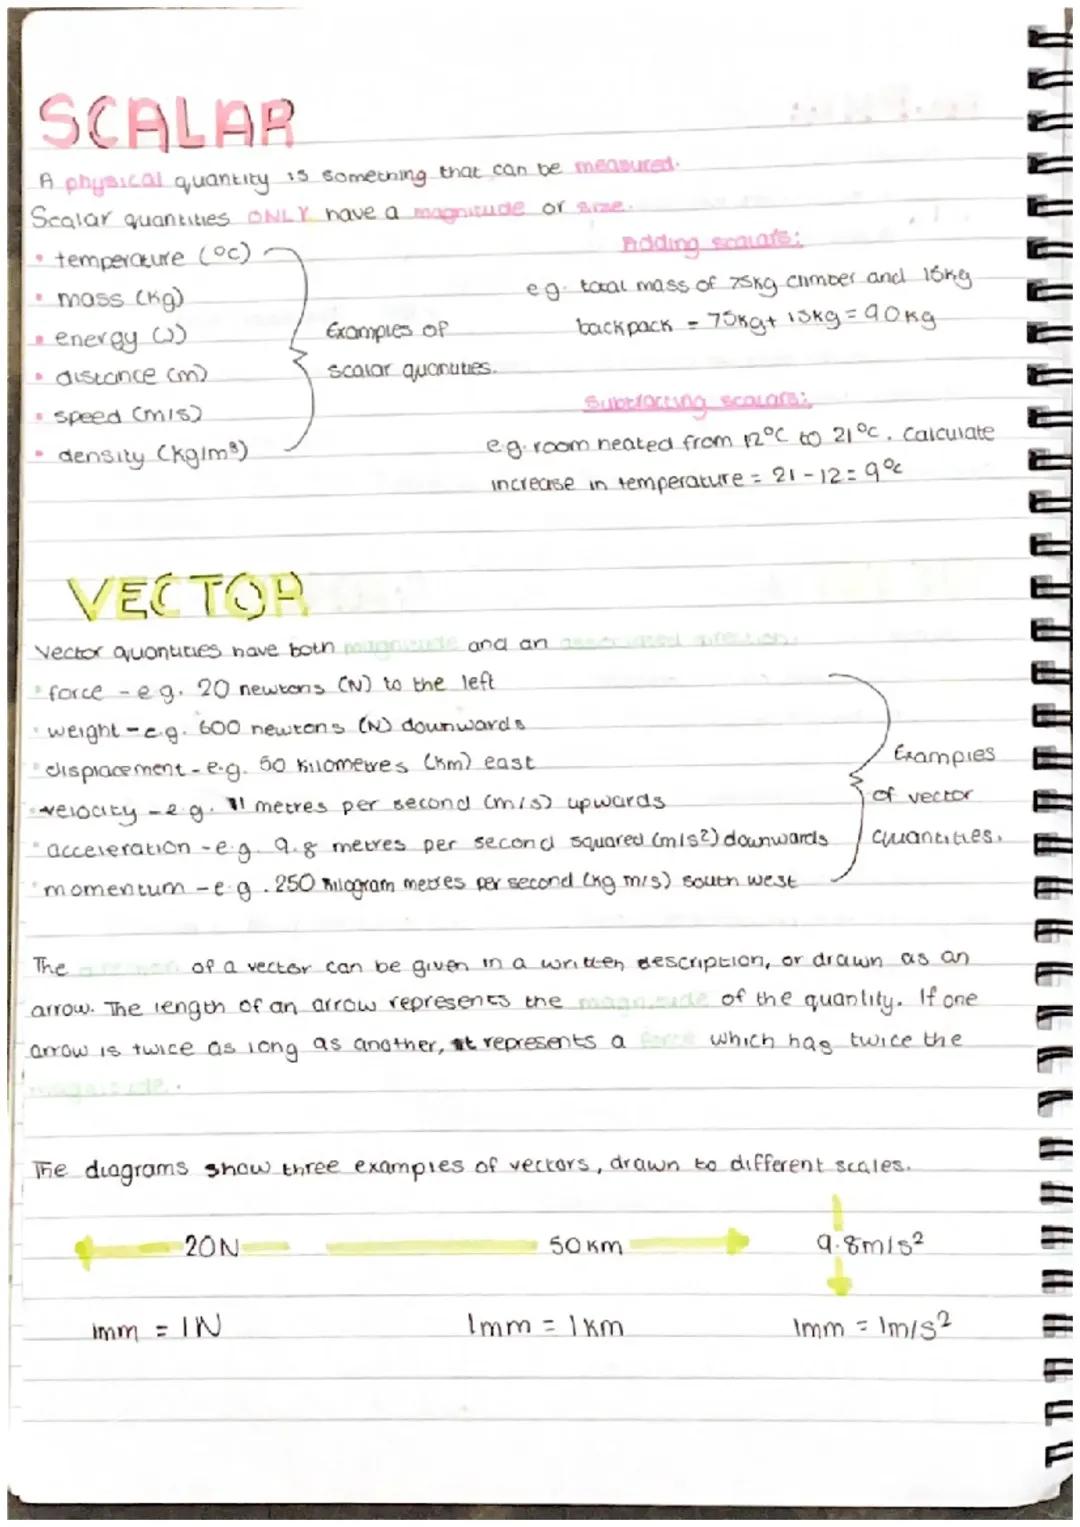 SCALAR
A physical quantity is something that can be measured.
Scalar quantities ONLY have a magnitude or size.
• temperature (°c)
• mass (kg)
• energy (J)
• distance (m)
• speed (m/s)
• density (kg/m³)
Examples of
scalar quantities.
Adding scalars:
e.g. total mass of 75kg climber and 15kg
backpack = 75kg + 15kg = 90kg
Subtracting scalars:
e.g. room heated from 12°C to 21°C. Calculate
increase in temperature = 21 - 12 = 9°c
VECTOR
Vector quantities have both magnitude and an associated direction.
• force - e.g. 20 newtons (N) to the left
• weight - e.g. 600 newtons (N) downwards
• displacement - e.g. 50 kilometres (km) east
• velocity - e.g. 11 metres per second (m/s) upwards
• acceleration - e.g. 9.8 metres per second squared (m/s²) downwards
• momentum - e.g. 250 kilogram metres per second (kg m/s) south west
Examples
of vector
quantities.
The direction of a vector can be given in a written description, or drawn as an
arrow. The length of an arrow represents the magnitude of the quantity. If one
arrow is twice as long as another, it represents a force which has twice the
magnitude.
The diagrams show three examples of vectors, drawn to different scales.
20N 50km 9.8m/s²
1mm = 1N 1mm = 1km 1mm = 1m/s²